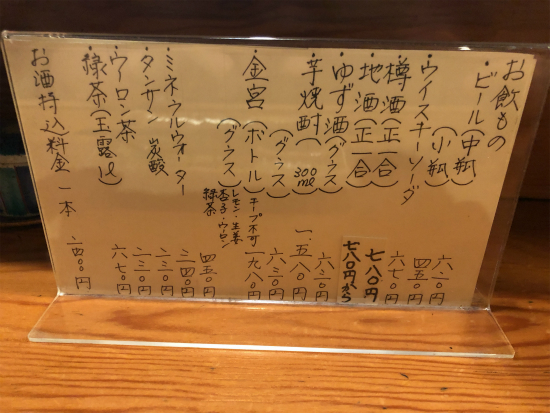 お飲もの
・ビール(中瓶) 六三〇円
(小瓶) 四五〇円
・ウイスキーソーダ 六七〇円
・樽酒(正一合) 七八〇円
・地酒(正一合) 七八〇円から
・ゆず酒(グラス) 六三〇円
・芋焼酎(300ml) 一、五八〇円
(グラス) 六三〇円
・金宮(ボトル) キープ不可 一九八〇円
(グラス) レモン・生姜 杏子・ウーロン 緑茶 四五〇円
・ミネラルウォーター 三四〇円
・タンサン 炭酸 二三〇円
・ウーロン茶 二三〇円
・緑茶(玉露1l) 六七〇円
お酒持込料金 一本 二四〇〇円